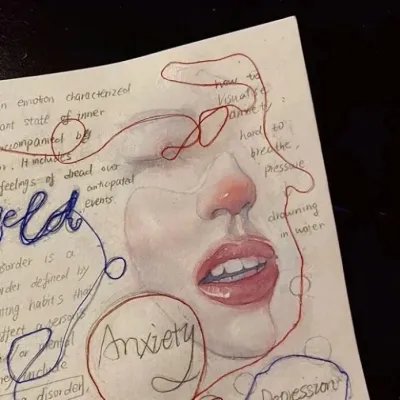 n emotion characterized
ant state of inner
accompanied by
n. It includes
feelings of dread over
anticipated
events.
how to
visualise
anxiety:
hard to
breathe,
pressure
drowning
in water
eld
isorder is a
rder defined by
ting habits that
affect a person's
or mental
include
disorder,
Anxiety
Depression